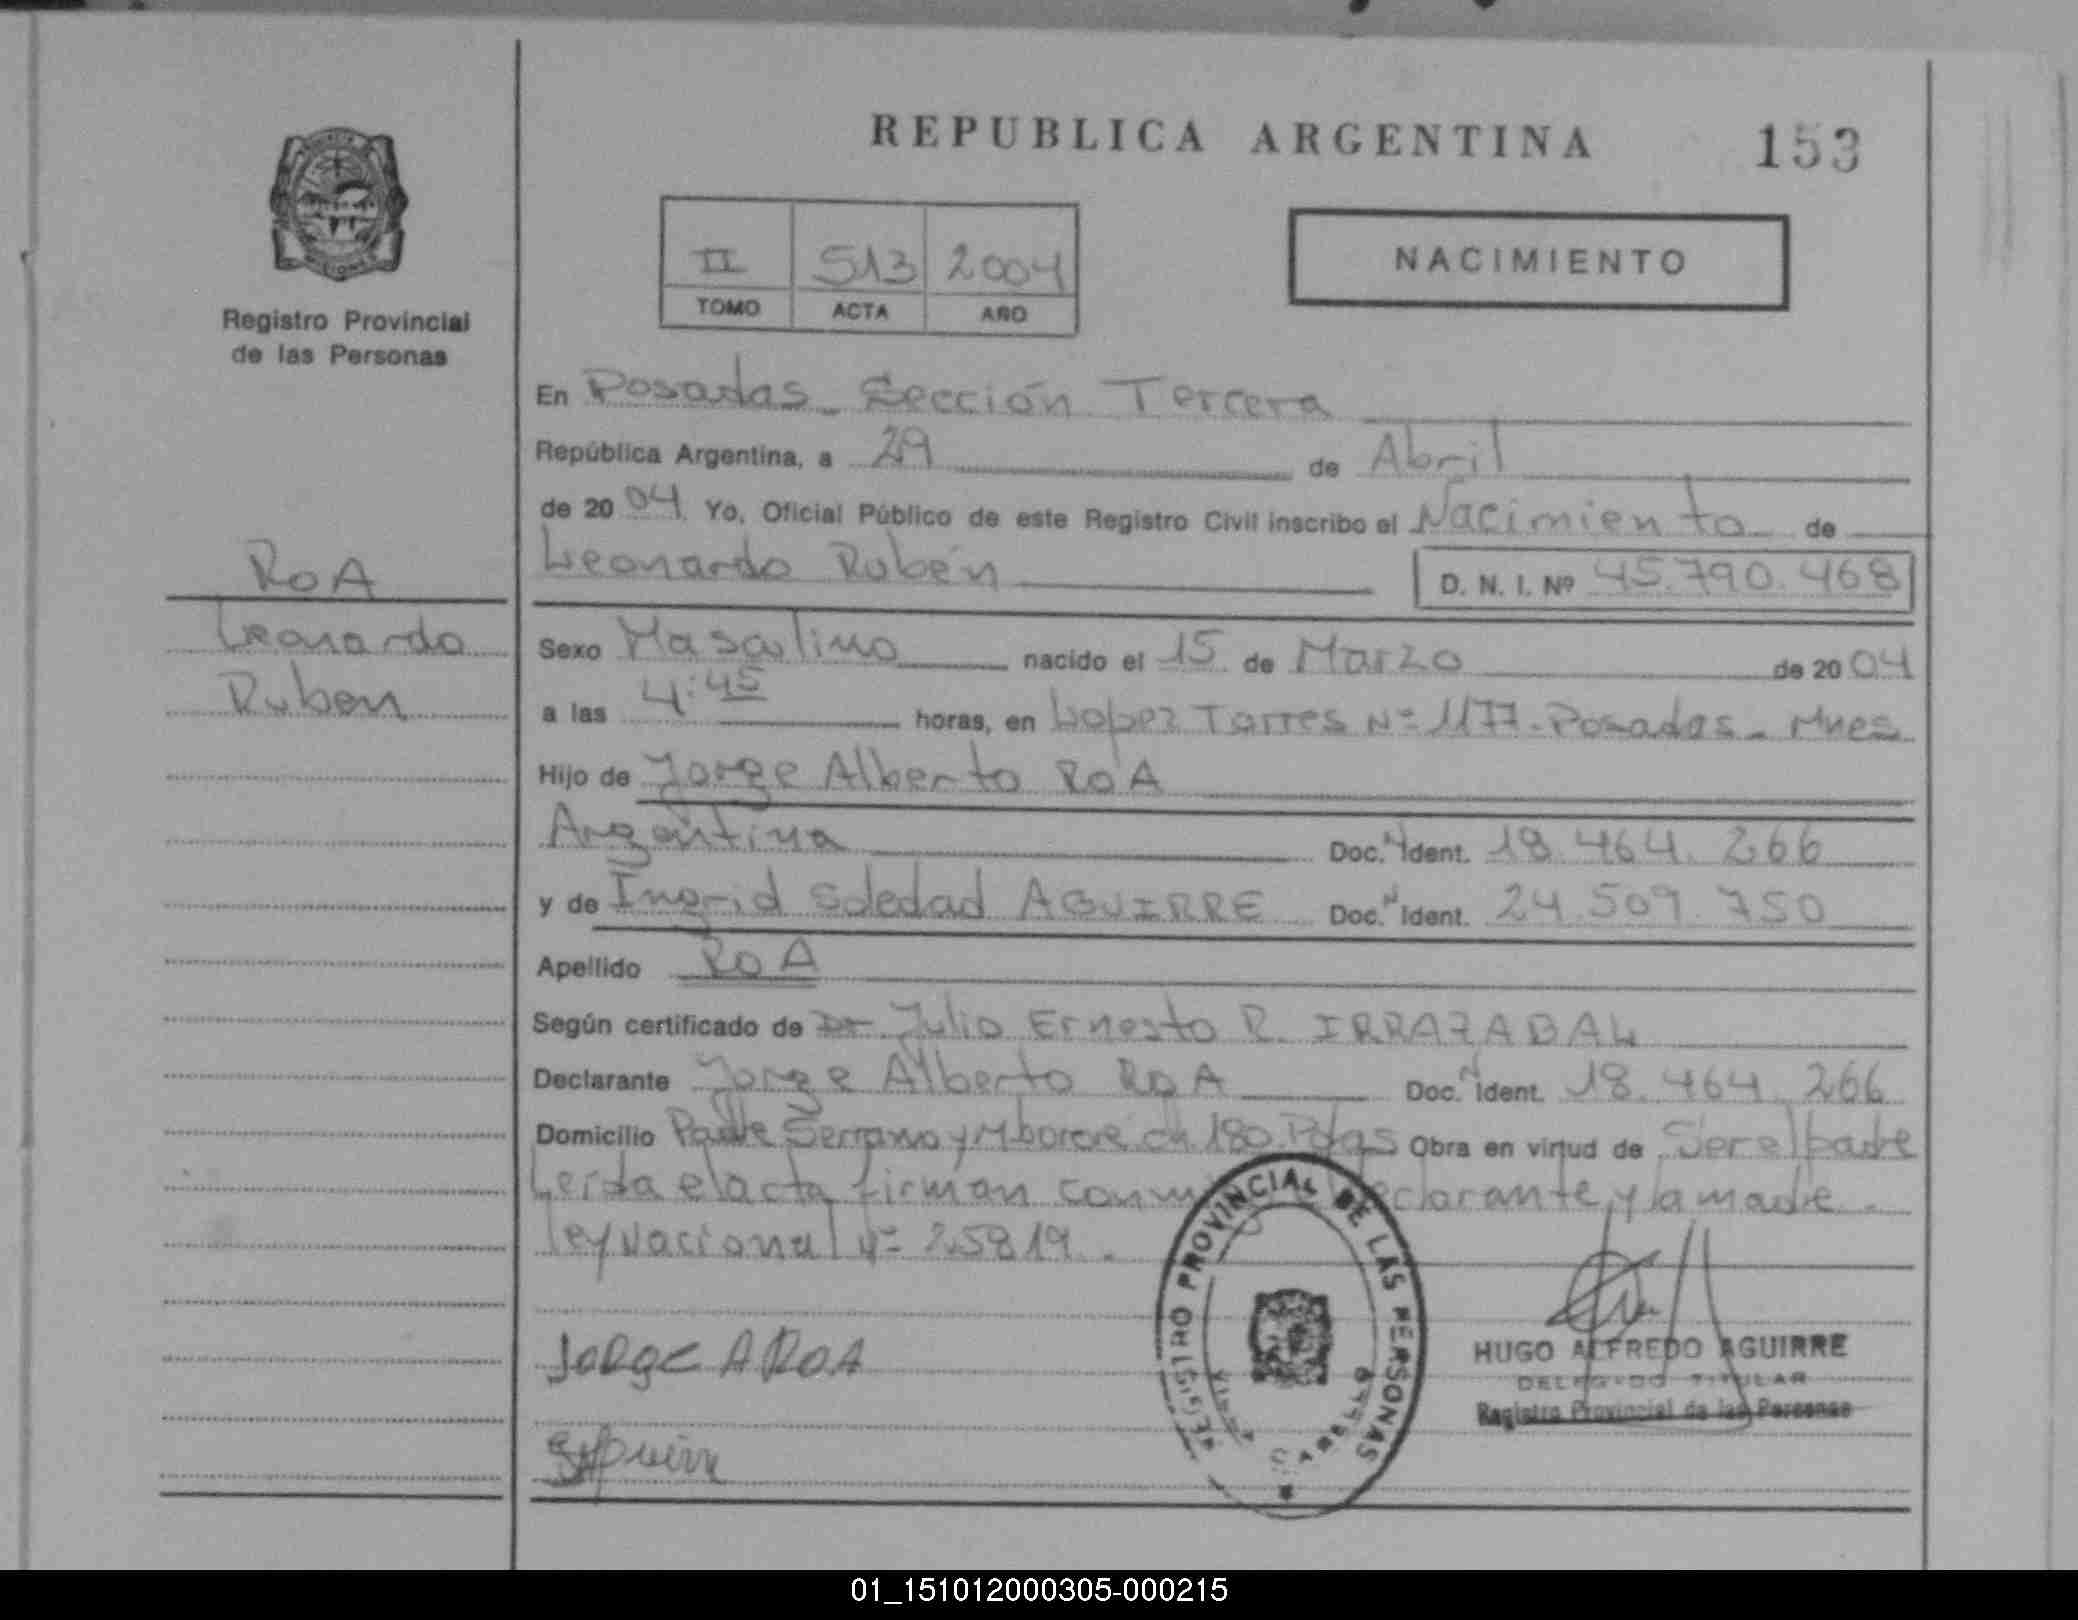 REPUBLICA ARGENTINA
153
II 513 2004
TOMO ACTA AÑO
NACIMIENTO
Registro Provincial
de las Personas
En Posadas - Sección Tercera
República Argentina, a 29 de Abril
de 2004. Yo, Oficial Público de este Registro Civil inscribo el Nacimiento de
Leonardo Rubén D. N. I. Nº 45.790.468
ROA
Leonardo
Ruben
Sexo Masculino nacido el 15 de Marzo de 2004
a las 4:45 horas, en Lopez Torres Nº 1177 - Posadas - Mnes
Hijo de Jorge Alberto ROA
Argentina Doc. N Ident. 18.464.266
y de Ingrid Soledad AGUIRRE Doc. N Ident. 24.509.750
Apellido ROA
Según certificado de Dr. Julio Ernesto R. IRRAZABAL
Declarante Jorge Alberto ROA Doc. N Ident. 18.464.266
Domicilio Padre Serrano y Mborore ch 180 Pdas Obra en virtud de Ser el padre
Leida el acta firman conmigo declarante y la madre.
ley Nacional Nº 25819.
REGISTRO PROVINCIAL DE LAS PERSONAS
JORGE A ROA
HUGO ALFREDO AGUIRRE
DELEGADO TITULAR
Registro Provincial de las Personas
01_151012000305-000215